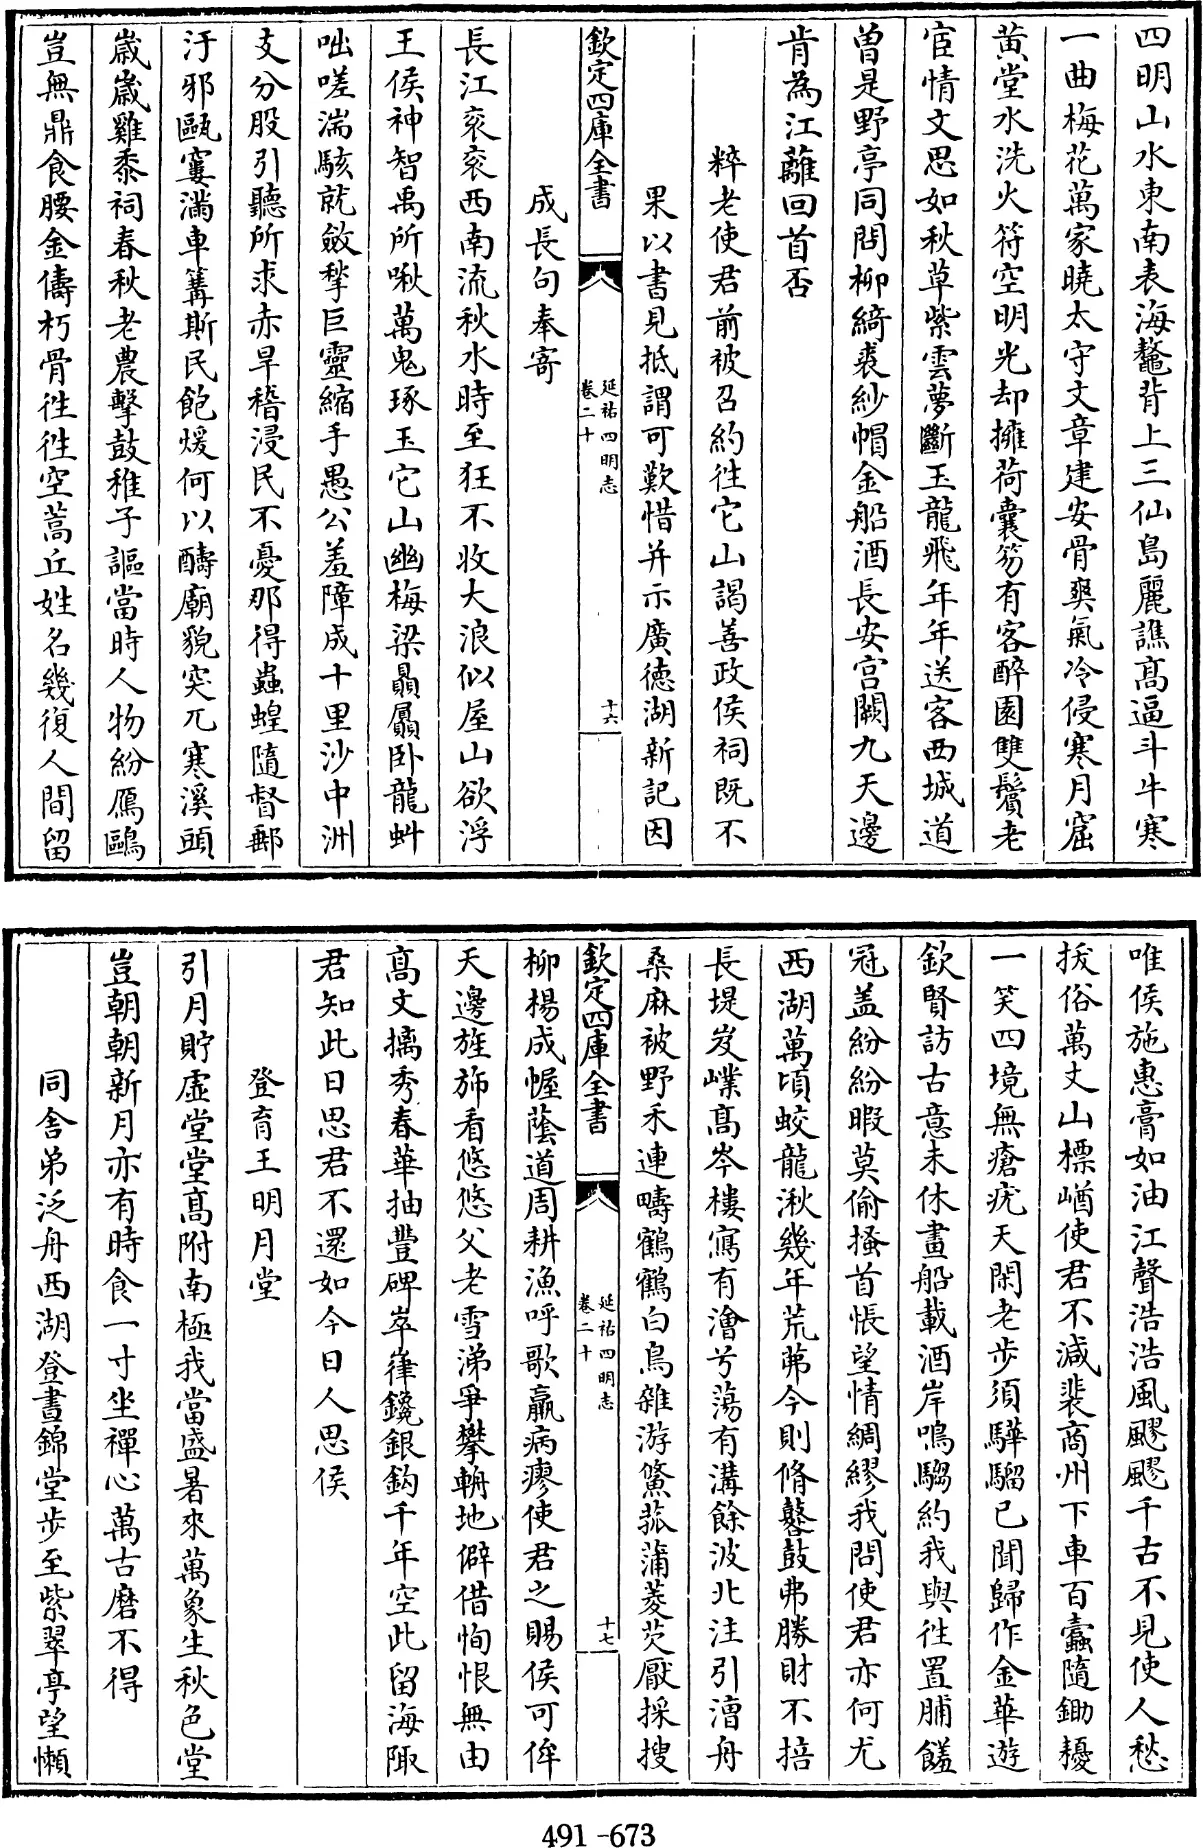 四明山水東南表海鼇背上三仙島麗譙髙逼斗牛寒
一曲梅花萬家曉太守文章建安骨爽氣冷侵寒月窟
黄堂水洗火符空明光却擁荷囊笏有客醉園雙鬢老
宦情文思如秋草紫雲夢斷玉龍飛年年送客西城道
曽是野亭同問柳綺裘紗帽金船酒長安宫闕九天邊
肯為江蘺回首否
粹老使君前被召約徃它山謁善政侯祠既不
果以書見抵謂可歎惜并示廣徳湖新記因
欽定四庫全書
延祐四明志
卷二十
十六
成長句奉寄
長江衮衮西南流秋水時至狂不收大浪似屋山欲浮
王侯神智禹所啾萬鬼琢玉它山幽梅梁贔屭卧龍虯
咄嗟湍駭就斂揫巨靈縮手愚公羞障成十里沙中洲
支分股引聽所求赤旱稽浸民不憂那得蟲蝗隨督郵
汙邪甌窶滿車篝斯民飽煖何以酬廟貌突兀寒溪頭
嵗嵗雞黍祠春秋老農擊鼓稚子謳當時人物紛鴈鷗
豈無鼎食腰金儔朽骨徃徃空蒿丘姓名幾復人間留
唯侯施惠膏如油江聲浩浩風飂飂千古不見使人愁
拔俗萬丈山標崷使君不減裴商州下車百蠧隨鋤耰
一笑四境無瘡疣天閑老步須驊騮已聞歸作金華遊
欽賢訪古意未休畫船載酒岸鳴騶約我與徃置脯饈
冠盖紛紛暇莫偷搔首悵望情綢繆我問使君亦何尤
西湖萬頃蛟龍湫幾年荒茀今則脩鼛鼓弗勝財不掊
長堤岌嶫髙岑樓窵有澮兮蕩有溝餘波北注引漕舟
桑麻被野禾連疇鶴鶴白鳥雜游鯈菰蒲菱芡厭採搜
欽定四庫全書
延祐四明志
卷二十
十七
柳楊成幄蔭道周耕漁呼歌羸病瘳使君之賜侯可侔
天邊旌斾看悠悠父老雪涕爭攀輈地僻借恂恨無由
髙文摛秀春華抽豐碑崒嵂鑱銀鈎千年空此留海陬
君知此日思君不還如今日人思侯
登育王明月堂
引月貯虛堂堂髙附南極我當盛暑來萬象生秋色堂
豈朝朝新月亦有時食一寸坐禪心萬古磨不得
同舍弟泛舟西湖登晝錦堂步至紫翠亭望懶
491-673